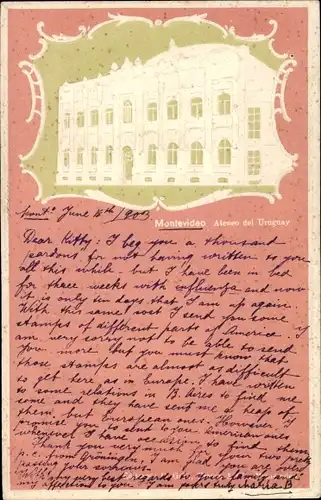 Montevideo Ateneo del Uruguay
Mont.º June 15th/903
Dear Kitty: I beg you a thousand
pardons for not having written to you
all this while but I have been in bed
for three weeks with influenza and now
it is only ten days that I am up again.
With this same post I send you some
stamps of different parts of America. I
am very sorry not to be able to send
you more, but you must know that
those stamps are almost as difficult
to get here as in Europe. I have written
to some relations in B. Aires to find me
some and they have sent me a heap of
them, but European ones. However, I
promise you to sent to you American ones
whenever I have occasion to find them
Thank you very much for your two
p.c. from Groningen. I am glad you
passing your
very best regards to your family and
my affection to you I am
Maria B.